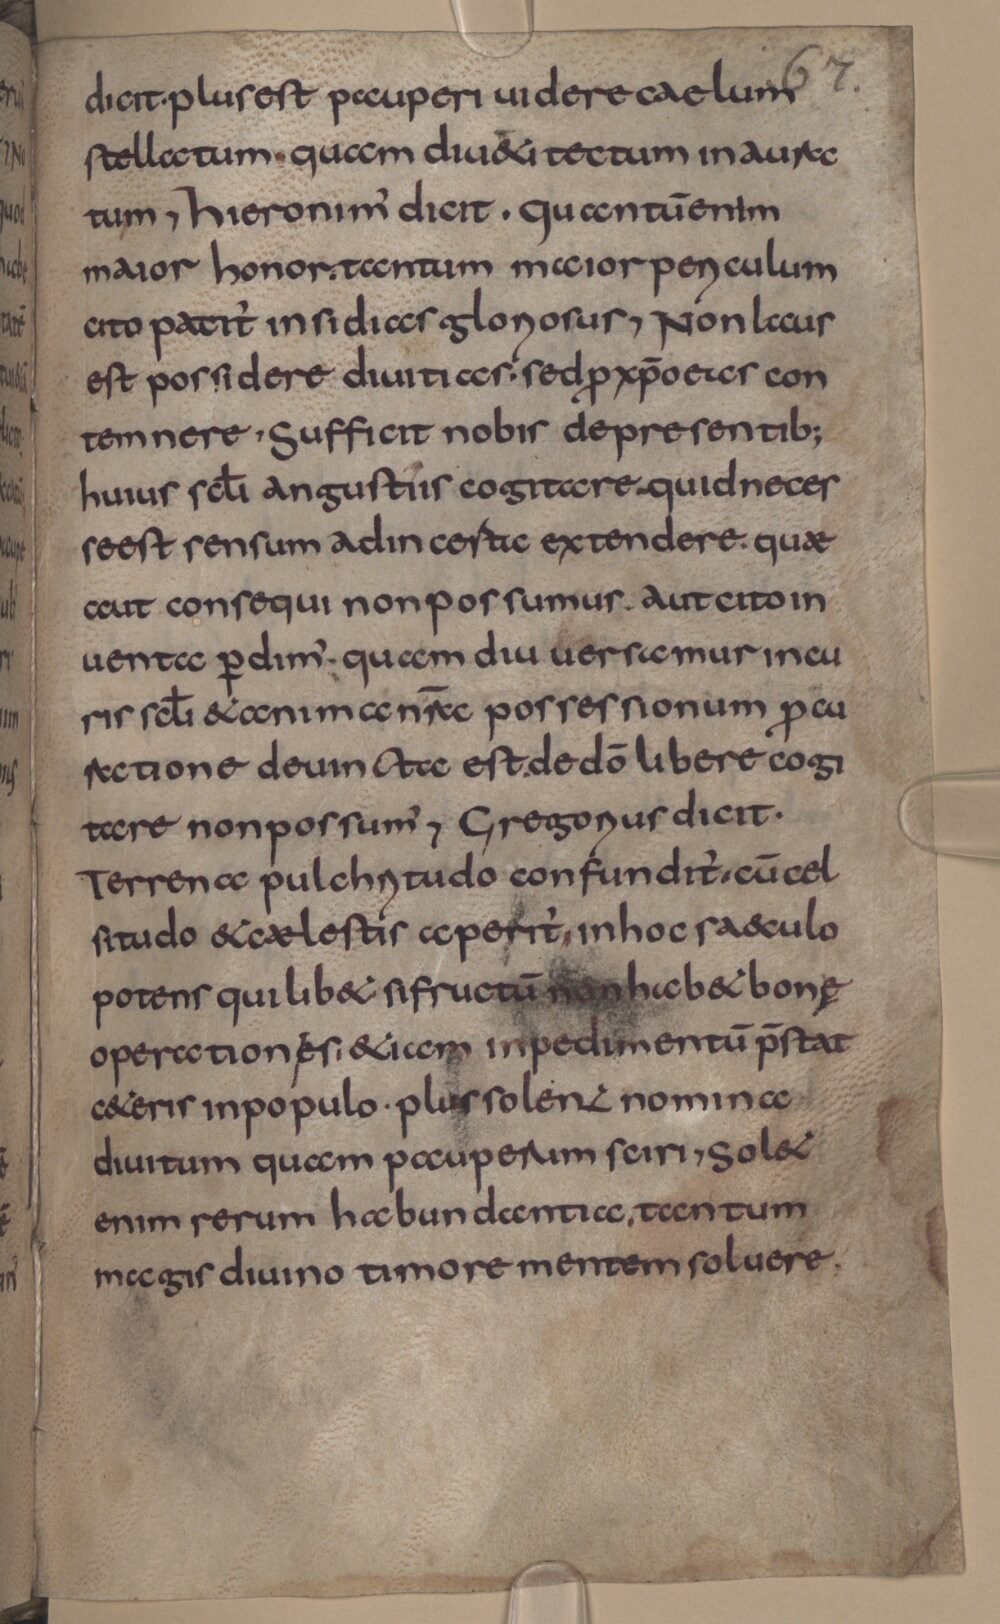 67.
dicit· plus est pauperi uidere caelum
stellatum· quam diuiti tectum inaura
tum, hieronim' dicit· Quantū enim
maior honor· tantum maior periculum
cito patit' insidias gloriosus, Non laus
est possidere diuitias· sed ꝓ xp̄o eas con
temnere, Sufficit nobis de presentib;
huius scłi angustiis cogitare· quid neces
se est sensum ad incerta extendere· quæ
aut consequi non possumus· aut cito in
uenta ꝑdim'· quam diu uersamur in cu
ris scłi & anima nr̄a possessionum ꝓcu
ratione deuincta est· de dō libere cogi
tare non possum', Gregorius dicit·
Terrena pulchritudo confundit'· cū cel
situdo & cælestis aperit', in hoc saeculo
potens quilib& si fructū non hab& bonę
operationęs, & iam inpedimentū p̄stat
c&eris in populo· plus solent nomina
diuitum quam pauperum sciri, Sol&
enim rerum habundantia, tantum
magis diuino timore mentem soluere·